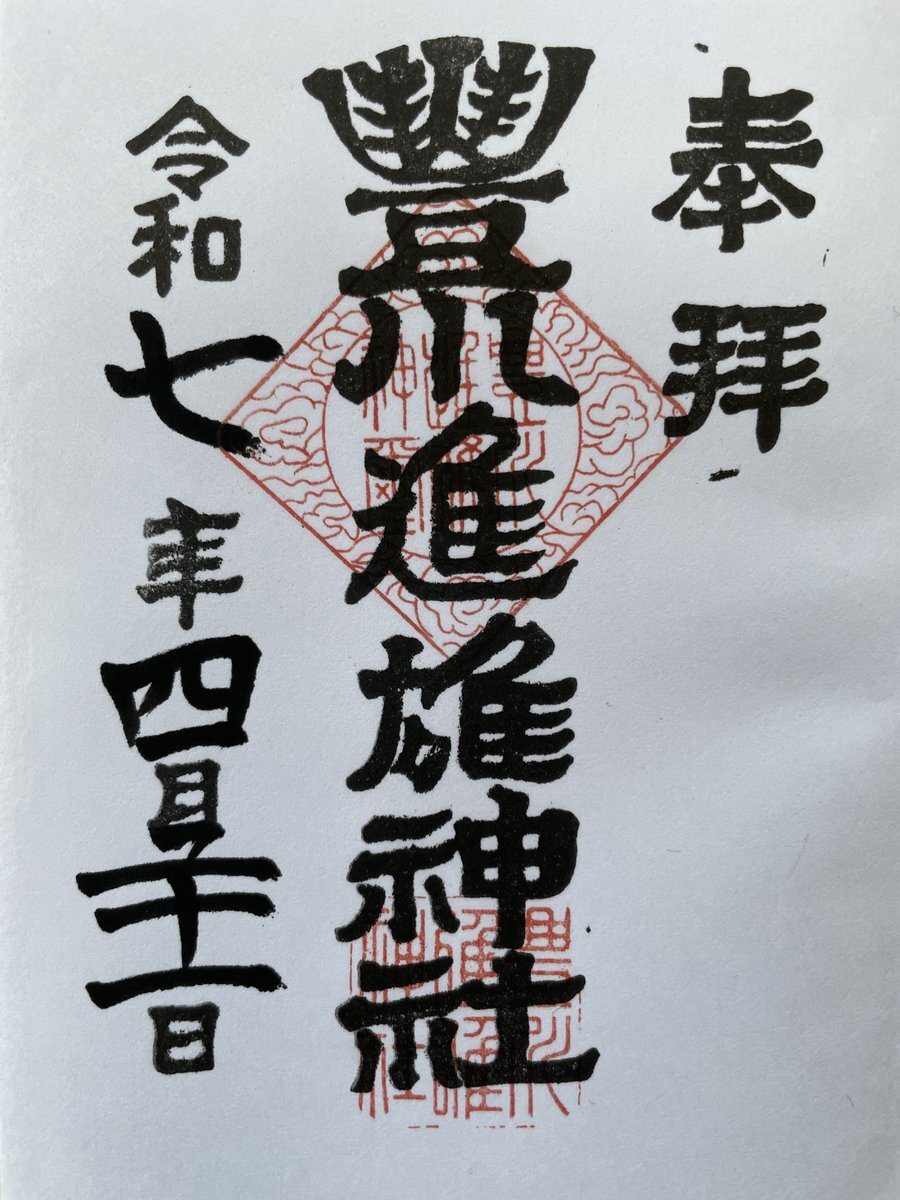 奉拝
豐川進雄神社
令和七年四月二十一日